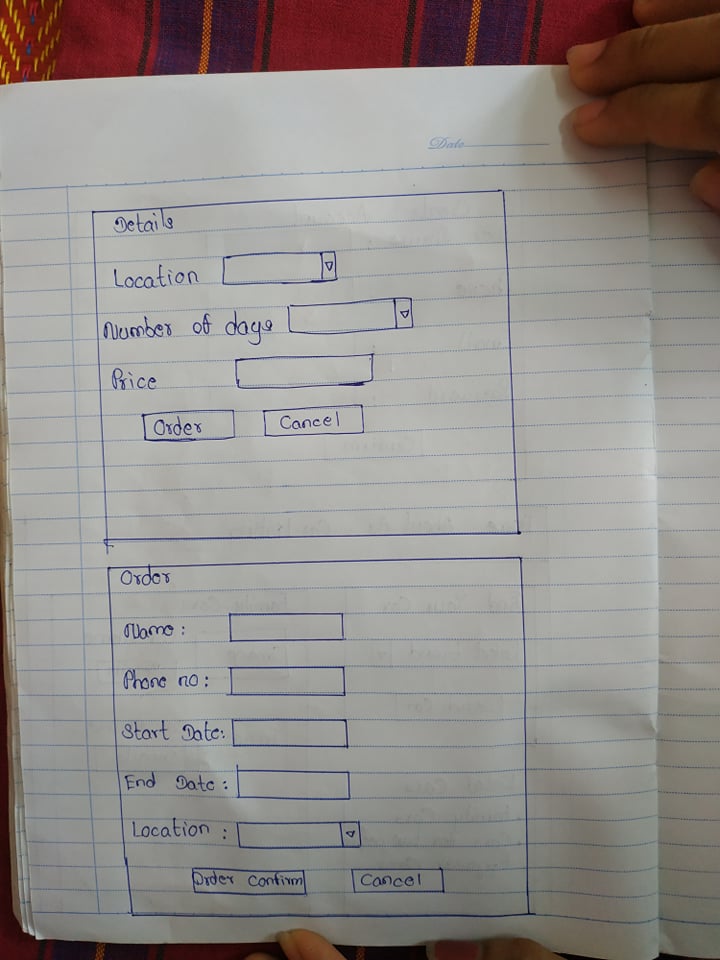 Date
Details
Location
Number of days
Price
Order Cancel
Order
Name:
Phone no:
Start Date:
End Date:
Location:
Order Confirm Cancel